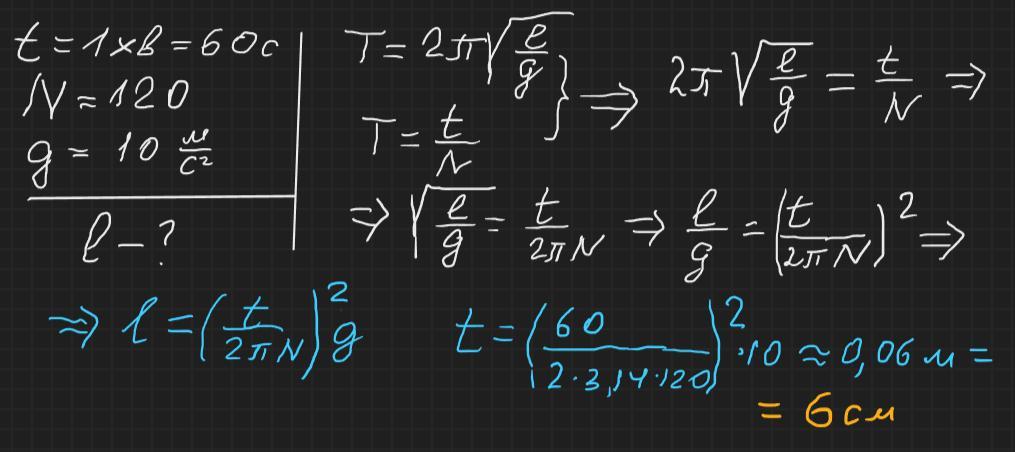 t = 1 хв = 60 с
N = 120
g = 10 м/с²
l – ?
T = 2π√(l/g)
T = t/N
} ⇒ 2π√(l/g) = t/N ⇒
⇒ √(l/g) = t/(2πN) ⇒ l/g = (t/(2πN))² ⇒
⇒ l = (t/(2πN))² g
t = (60/(2·3,14·120))² ·10 ≈ 0,06 м =
= 6 см